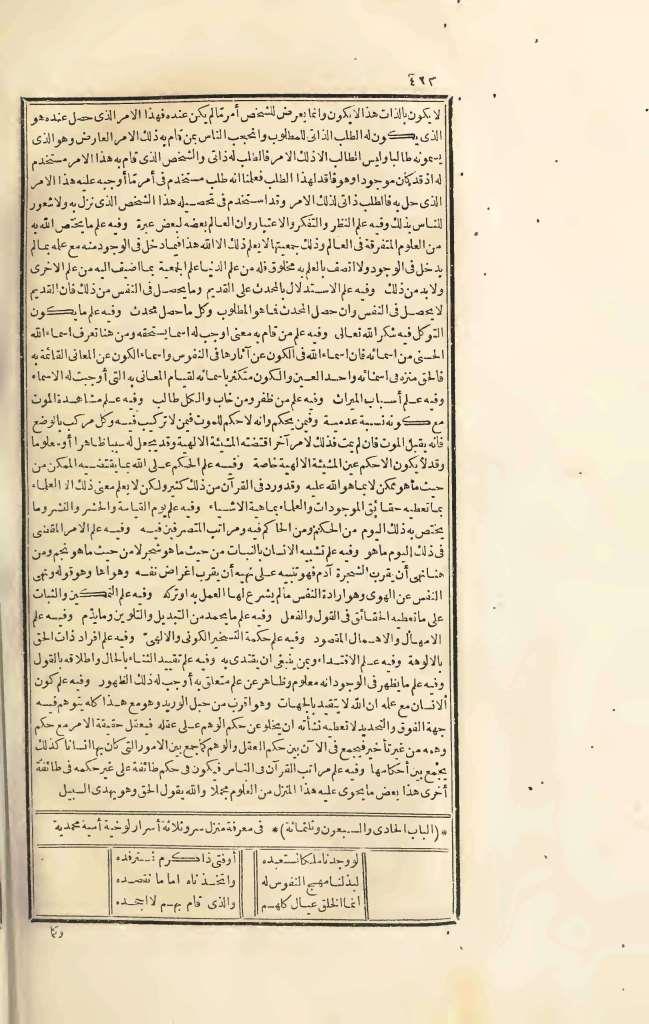 ٤٦٣
لا يكون بالذات هذا لا يكون وانما يعرض للشخص أمر ما لم يكن عنده فهذا الامر الذى حصل عنده هو
الذى يكون له الطلب الذاتى للمطلوب وانحجب الناس بمن قام به ذلك الامر العارض وهو الذى
يسمونه طالبا وليس الطالب الا ذلك الامر فالطلب له ذاتى والشخص الذى قام به هذا الامر مستخدم
له اذ قد كان موجودا وهو فاقد لهذا الطلب فعلمنا انه طلب مستخدم فى أمر ما أوجبه عليه هذا الامر
الذى حل به فالطلب ذاتى لذلك الامر وقد استخدم فى تحصيله هذا الشخص الذى نزل به ولا شعور
للناس بذلك وفيه علم النظر والتفكر والاعتبار وان العالم بعضه لبعض عبرة وفيه علم ما يختص الله به
من العلوم المتفرقة فى العالم وذلك جمعيتها لا يعلم ذلك الا الله هذا فيما دخل فى الوجود منه مع علمه بما لم
يدخل فى الوجود ولا اتصف بالعلم به مخلوق فله من علم الدنيا علم الجمعية بما اضيف اليه من علم الاخرى
ولا بد من ذلك وفيه علم الاستدلال بالمحدث على القديم وما يحصل فى النفس من ذلك فان القديم
لا يحصل فى النفس وان حصل المحدث فما هو المطلوب وكل ما حصل محدث وفيه علم ما يكون
التوكل فيه شكر الله تعالى وفيه علم من قام به معنى اوجب له اسما يستحقه ومن هنا تعرف اسماء الله
الحسنى من اسمائه فان اسماء الله فى الكون عن آثارها فى النفوس واسماء الكون عن المعانى القائمة به
فالحق منزه فى اسمائه واحد العين والكون متكثر باسمائه لقيام المعانى به التى أوجبت له الاسماء
وفيه علم أسباب الميراث وفيه علم من ظفر ومن خاب والكل طالب وفيه علم مشاهدة الموت
مع كونه نسبة عدمية وفيمن يحكم وانه لا حكم للموت فيمن لا تركيب فيه وكل مركب بالوضع
فانه يقبل الموت فان لم يمت فذلك لامر آخر اقتضته المشيئة الالهية وقد يجعل له سببا ظاهرا أو معلوما
وقد لا يكون الا حكم عين المشيئة الالهية خاصة وفيه علم الحكيم على الله بما يقتضيه الممكن من
حيث ما هو ممكن لا بما هو الله عليه وقد ورد فى القرآن من ذلك كثير ولكن لا يعلم معنى ذلك الا العلماء
بما تعطيه حقائق الموجودات والعلماء بماهية الاشياء وفيه علم يوم القيامة والحشر والنشر وما
يختص به ذلك اليوم من الحكم ومن الحاكم فيه ومراتب المتصرفين فيه وفيه علم الامر المقضى
فى ذلك اليوم ما هو وفيه علم تشبيه الانسان بالنبات من حيث ما هو شجر لا من حيث ما هو نجم ومن
هنا نهى أن يقرب الشجرة آدم فهو تنبيه على نهيه أن يقرب اغراض نفسه وهواها وهو قوله ونهى
النفس عن الهوى وهو ارادة النفس ما لم يشرع لها العمل به او تركه وفيه علم التمكين والثبات
على ما تعطيه الحقائق فى القول والفعل وفيه علم ما يحمد من التبديل والتلوين وما يذم وفيه علم
الامهال والاهمال المقصود وفيه علم حكمة التسخير الكونى والالهى وفيه علم افراد ذات الحق
بالالوهة وفيه علم الاقتداء وبمن ينبغى ان يقتدى به وفيه علم تقييد الثناء بالحال واطلاقه بالقول
وفيه علم ما يظهر فى الوجود انه معلوم وظاهر عن علم متعلق به أوجب له ذلك الظهور وفيه علم كون
الانسان مع علمه ان الله لا يتقيد بالجهات وهو اقرب من حبل الوريد وهو مع هذا كله يتوهم فيه
جهة الفوق والتحديد لا تعطيه نشأته ان يخلو عن حكم الوهم على عقله فيعقل حقيقة الامر مع حكم
وهمه من غير تأخير فيجمع فى الآن بين حكم العقل والوهم كما جمع بين الامور التى كان بها انسانا كذلك
يجمع بين أحكامها وفيه علم مراتب القرآن فى الناس فيكون فى حكم طائفة على غير حكمه فى طائفة
أخرى هذا بعض ما يحوى عليه هذا المنزل من العلوم مجملا والله يقول الحق وهو يهدى السبيل
*(الباب الحادى والسبعون وثلثمائة)* فى معرفة منزل سر وثلاثة أسرار لوحية أمية محمدية
لو وجدنا ملكا نستعبده أو فتى ذا كرم نسترفده
لبذلنا مهج النفوس له واتخذناه اماما نقصده
انما الخلق عيال كلهم والذى قام بهم لا اجحده